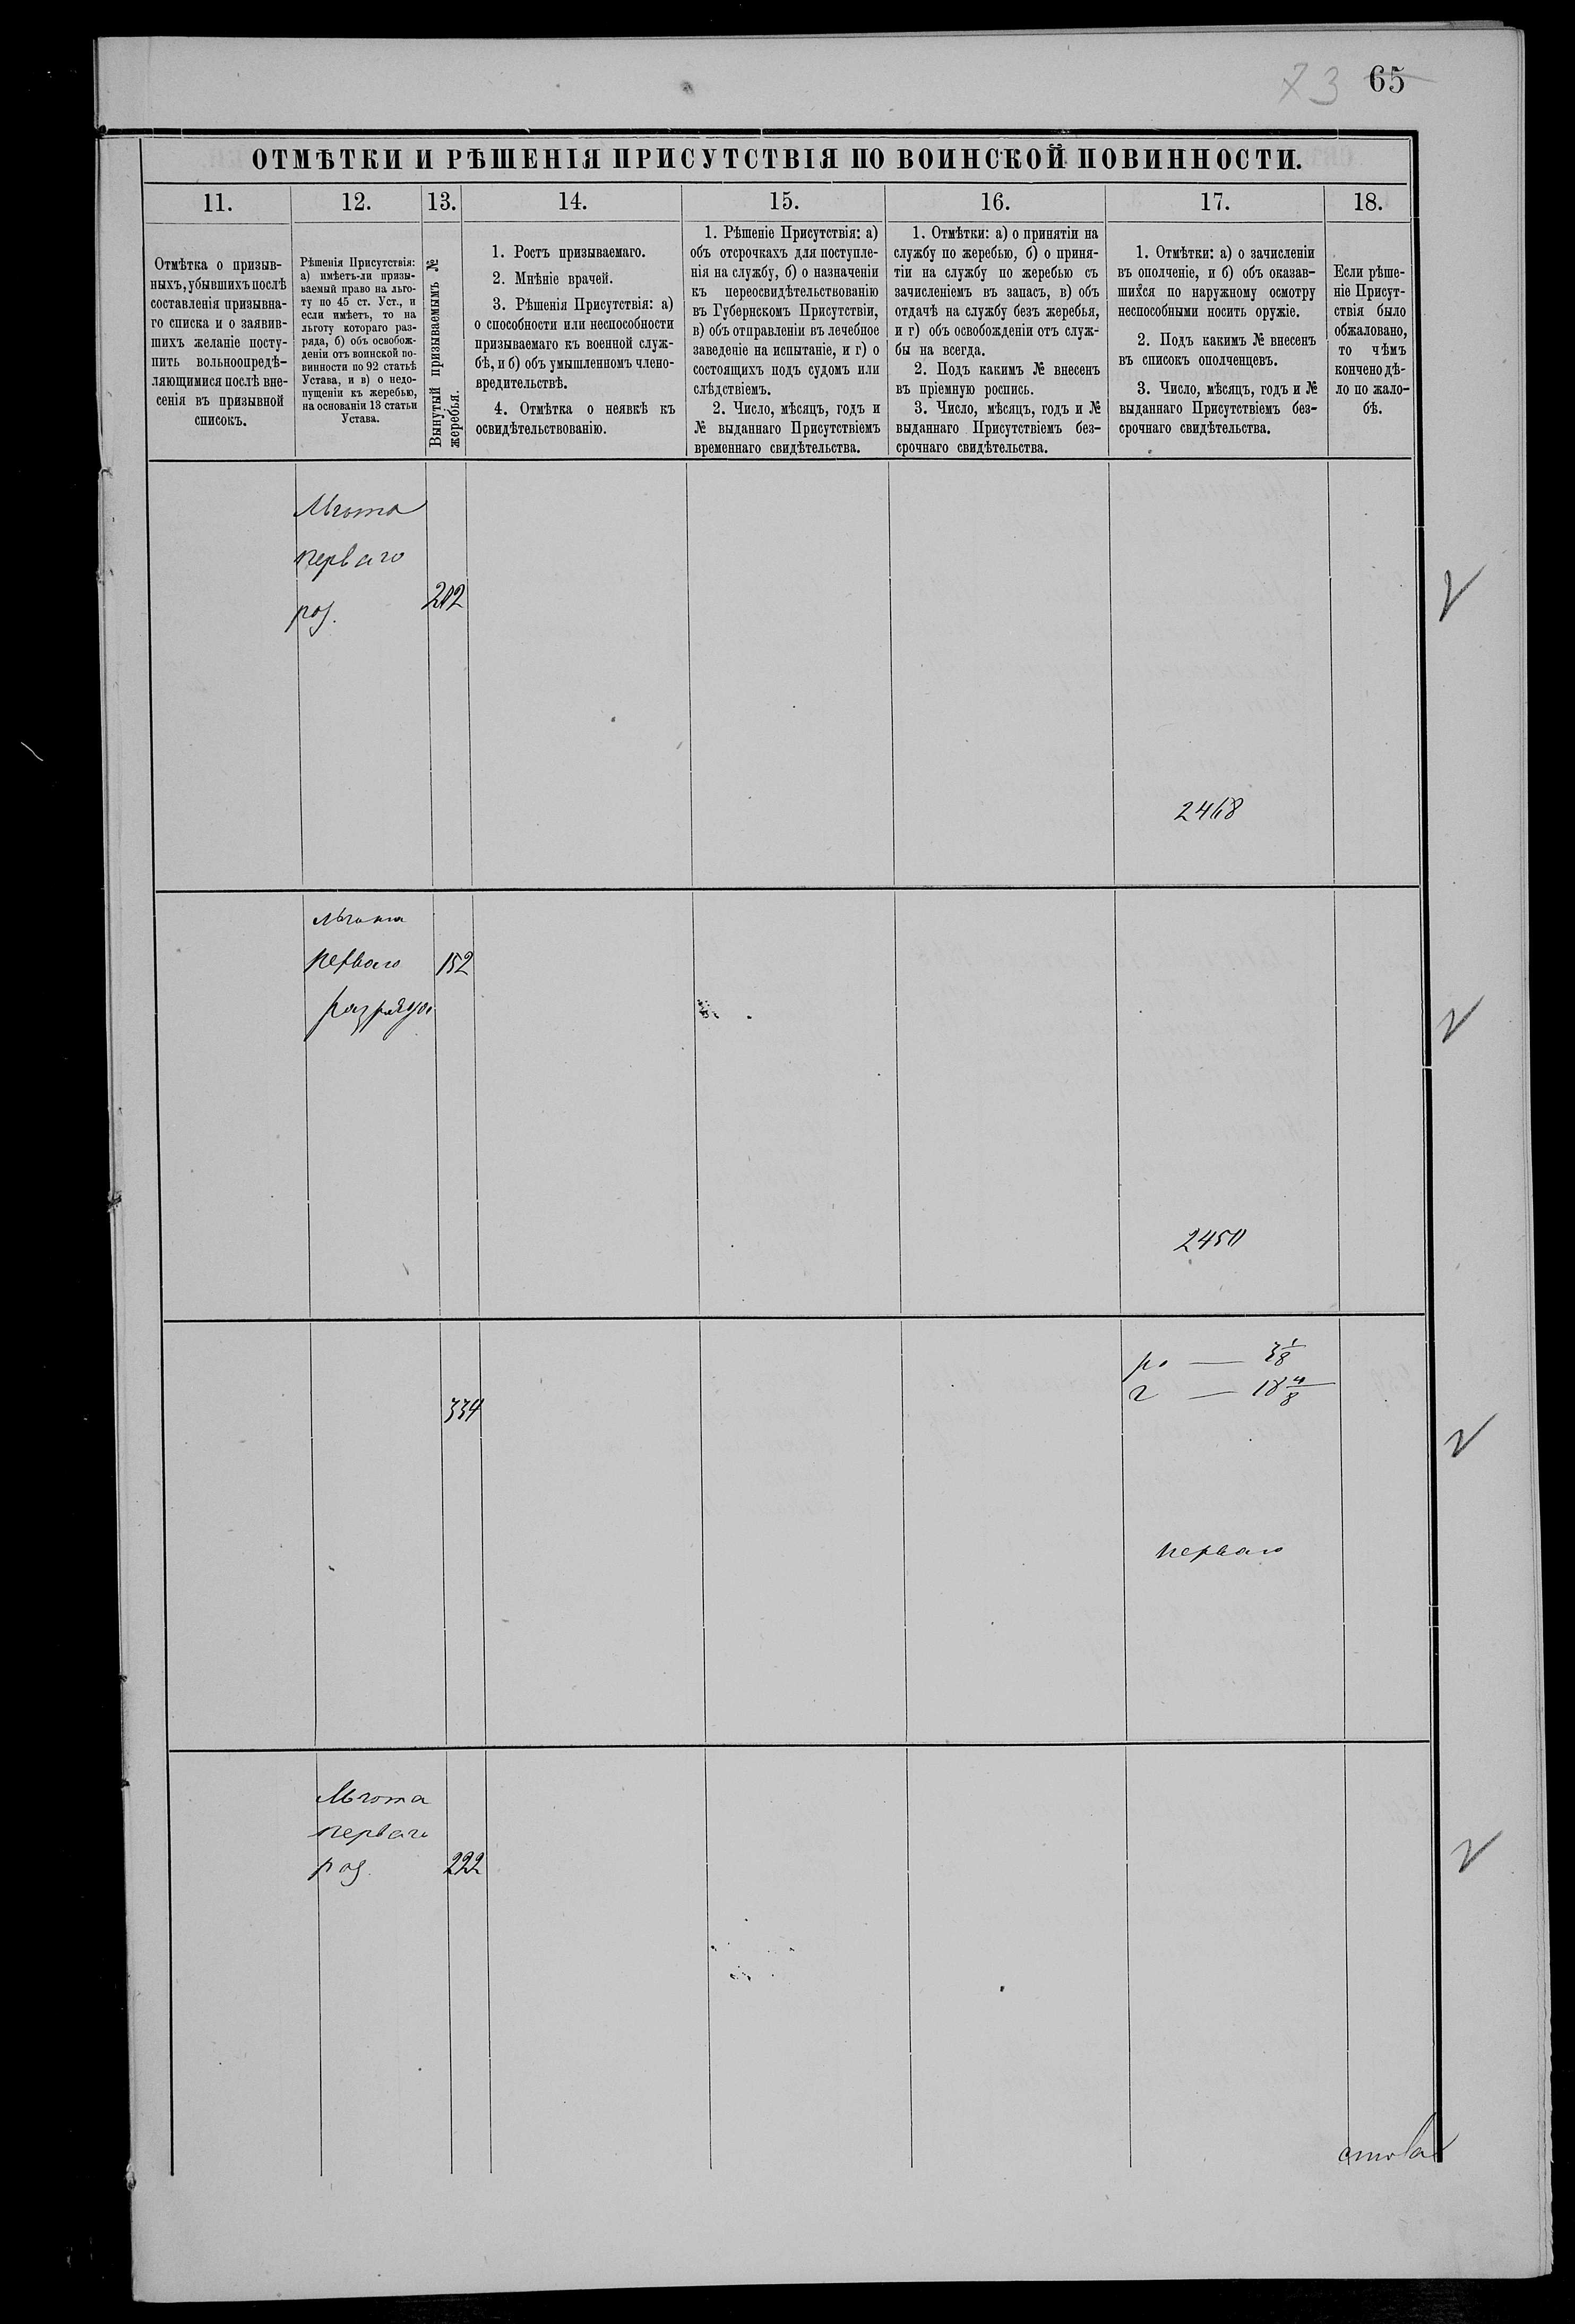 73 65
ОТМѢТКИ И РѢШЕНІЯ ПРИСУТСТВІЯ ПО ВОИНСКОЙ ПОВИННОСТИ.
11. 12. 13. 14. 15. 16. 17. 18.
Отмѣтка о призыв-
ныхъ, убывшихъ послѣ
составленія призывна-
го списка и о заявив-
шихъ желаніе посту-
пить вольноопредѣ-
ляющимися послѣ вне-
сенія въ призывной
списокъ.
Рѣшенія Присутствія:
а) имѣетъ-ли призы-
ваемый право на льго-
ту по 45 ст. Уст., и
если имѣетъ, то на
льготу котораго раз-
ряда, б) объ освобож-
деніи отъ воинской по-
винности по 92 статьѣ
Устава, и в) о недо-
пущеніи къ жеребью,
на основаніи 13 статьи
Устава.
Вынутый призываемымъ №
жеребья.
1. Ростъ призываемаго.
2. Мнѣніе врачей.
3. Рѣшенія Присутствія: а)
о способности или неспособности
призываемаго къ военной служ-
бѣ, и б) объ умышленномъ члено-
вредительствѣ.
4. Отмѣтка о неявкѣ къ
освидѣтельствованію.
1. Рѣшеніе Присутствія: а)
объ отсрочкахъ для поступле-
нія на службу, б) о назначеніи
къ переосвидѣтельствованію
въ Губернскомъ Присутствіи,
в) объ отправленіи въ лечебное
заведеніе на испытаніе, и г) о
состоящихъ подъ судомъ или
слѣдствіемъ.
2. Число, мѣсяцъ, годъ и
№ выданнаго Присутствіемъ
временнаго свидѣтельства.
1. Отмѣтки: а) о принятіи на
службу по жеребью, б) о приня-
тіи на службу по жеребью съ
зачисленіемъ въ запасъ, в) объ
отдачѣ на службу безъ жеребья,
и г) объ освобожденіи отъ служ-
бы на всегда.
2. Подъ какимъ № внесенъ
въ пріемную роспись.
3. Число, мѣсяцъ, годъ и №
выданнаго Присутствіемъ без-
срочнаго свидѣтельства.
1. Отмѣтки: а) о зачисленіи
въ ополченіе, и б) объ оказав-
шихся по наружному осмотру
неспособными носить оружіе.
2. Подъ какимъ № внесенъ
въ списокъ ополченцевъ.
3. Число, мѣсяцъ, годъ и №
выданнаго Присутствіемъ без-
срочнаго свидѣтельства.
Если рѣше-
ніе Присут-
ствія было
обжаловано,
то чѣмъ
кончено дѣ-
ло по жало-
бѣ.
Льгота
перваго
раз.
202
2468
льгота
перваго 152
разряда
2450
334
перваго
Льгота
перваго
раз. 222